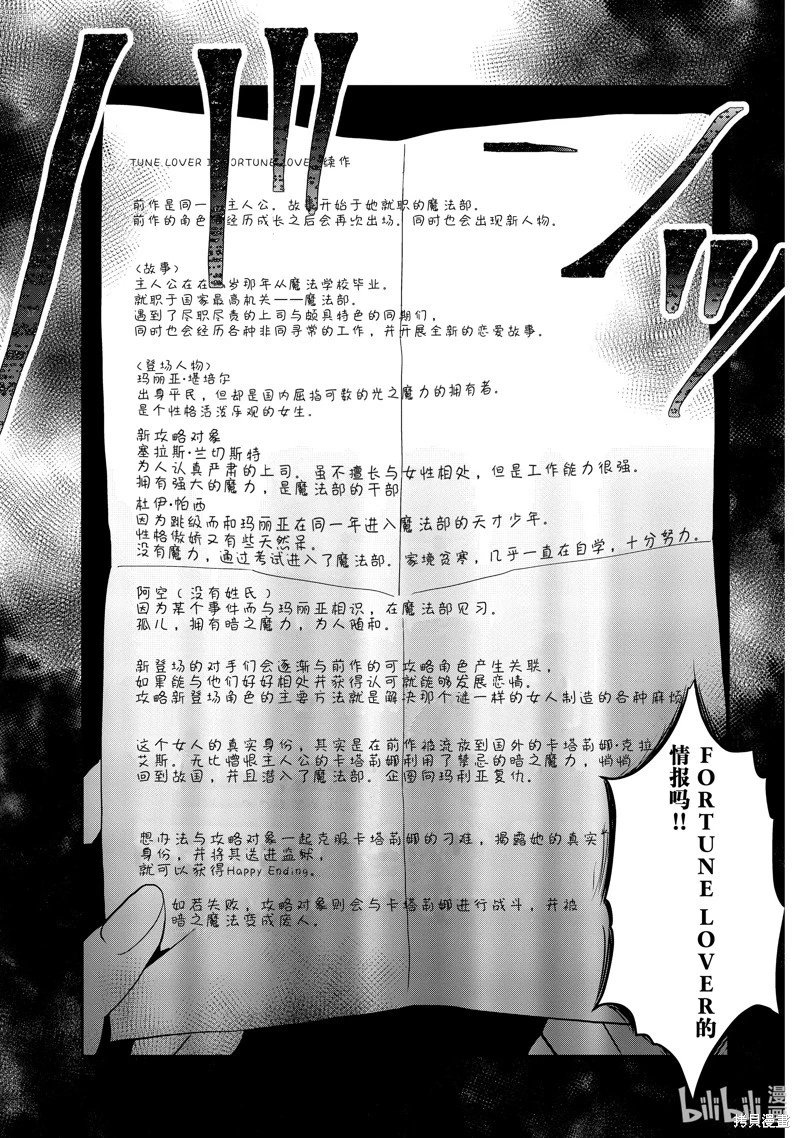 TUNE LOVER II ORTUNE LOVE 续作
前作是同一 主人公。故事开始于她就职的魔法部。
前作的角色 经历成长之后会再次出场。同时也会出现新人物。
〈故事〉
主人公在在 岁那年从魔法学校毕业。
就职于国家最高机关——魔法部。
遇到了尽职尽责的上司与颇具特色的同期们，
同时也会经历各种非同寻常的工作，并开展全新的恋爱故事。
〈登场人物〉
玛丽亚·堪培尔
出身平民，但却是国内屈指可数的光之魔力的拥有者。
是个性格活泼乐观的女生。
新攻略对象
塞拉斯·兰切斯特
为人认真严肃的上司。虽不擅长与女性相处，但是工作能力很强。
拥有强大的魔力，是魔法部的干部
杜伊·帕西
因为跳级而和玛丽亚在同一年进入魔法部的天才少年。
性格傲娇又有些天然呆。
没有魔力，通过考试进入了魔法部。家境贫寒，几乎一直在自学，十分努力。
阿空（没有姓氏）
因为某个事件而与玛丽亚相识，在魔法部见习。
孤儿，拥有暗之魔力，为人随和。
新登场的对手们会逐渐与前作的可攻略角色产生关联，
如果能与他们好好相处并获得认可就能够发展恋情。
攻略新登场角色的主要方法就是解决那个谜一样的女人制造的各种麻烦
这个女人的真实身份，其实是在前作被流放到国外的卡塔莉娜·克拉
艾斯。无比憎恨主人公的卡塔莉娜利用了禁忌的暗之魔力，悄悄
回到故国，并且潜入了魔法部。企图向玛利亚复仇。
想办法与攻略对象一起克服卡塔莉娜的刁难，揭露她的真实
身份，并将其送进监狱，
就可以获得Happy Ending。
如若失败，攻略对象则会与卡塔莉娜进行战斗，并被
暗之魔法变成废人。
FORTUNE LOVER的
情报吗!!
bilibili 漫画
拷貝漫畫